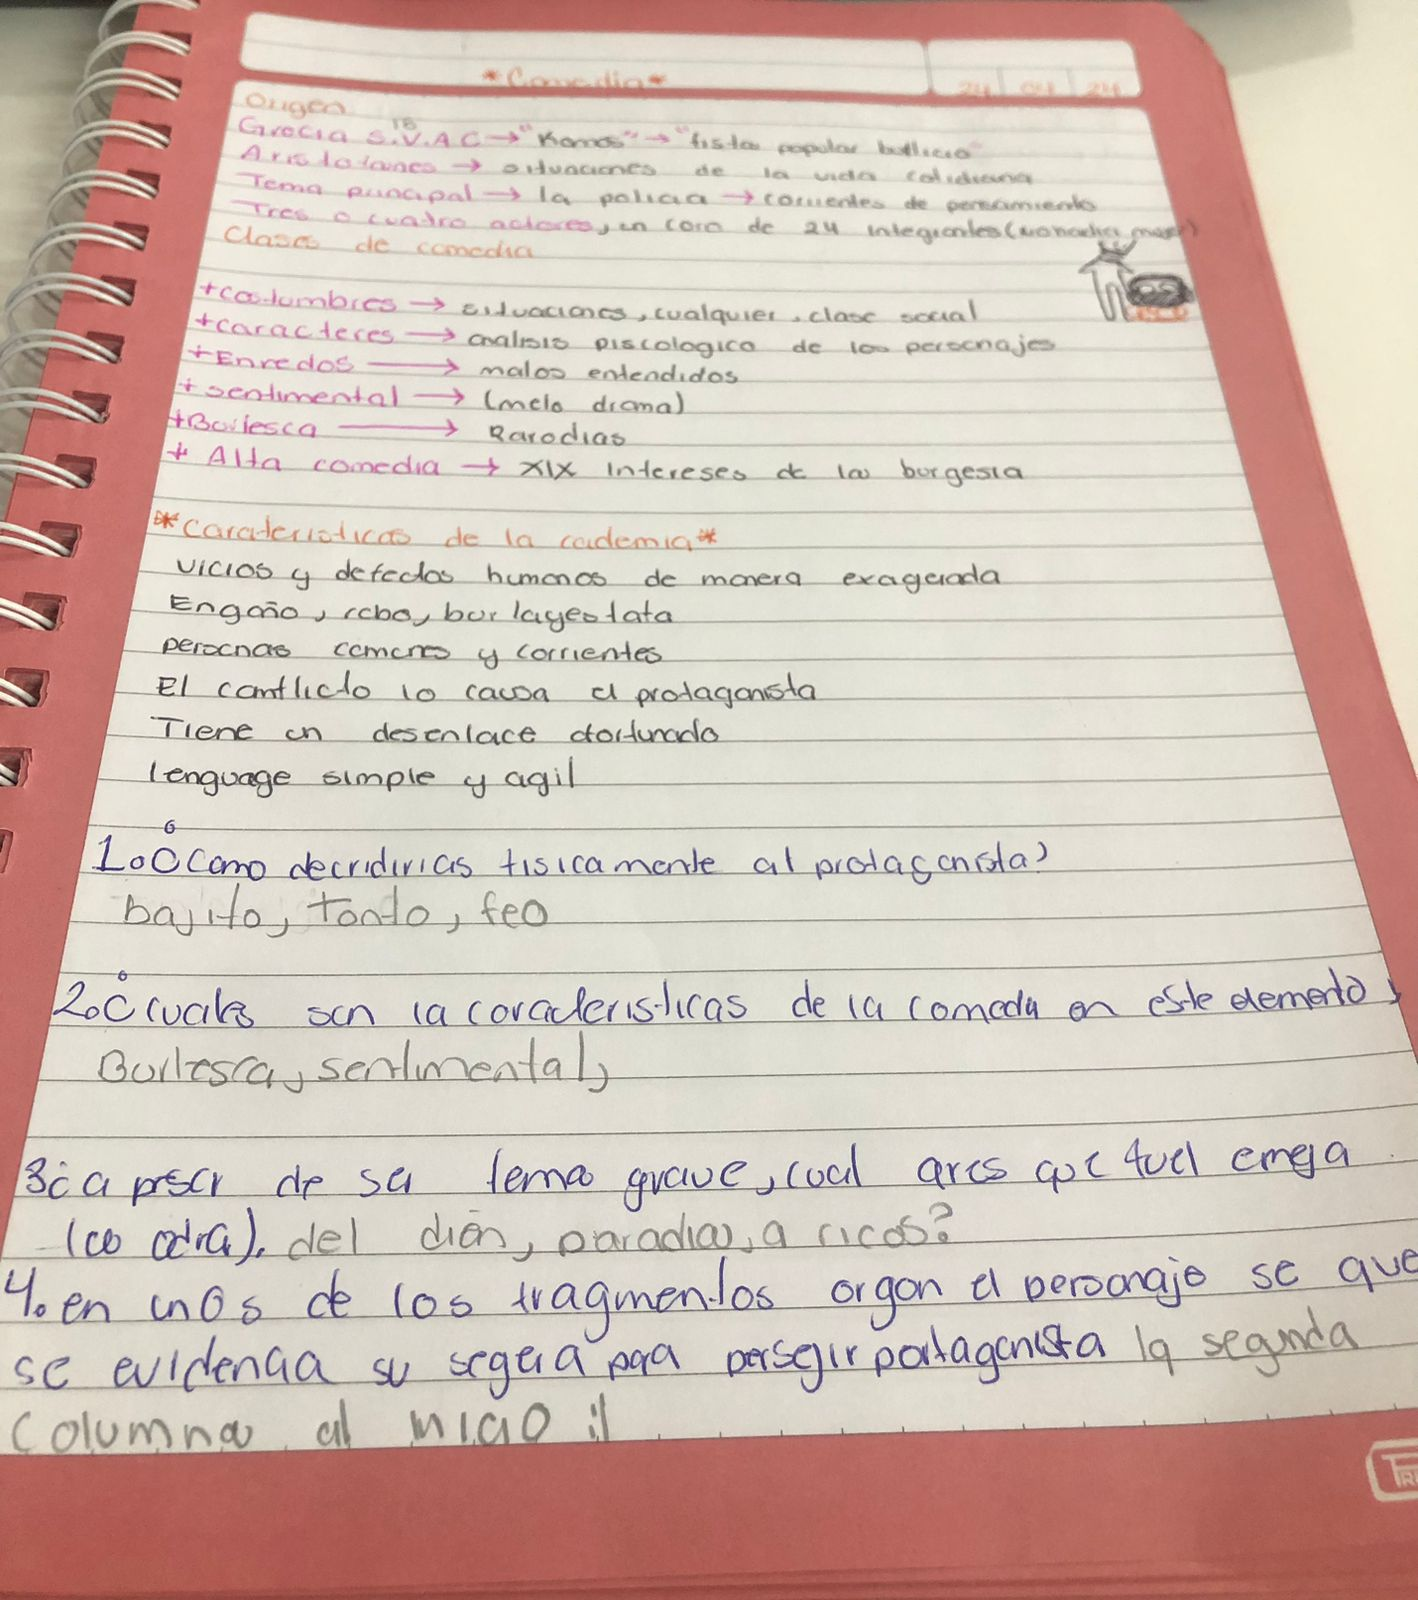 *Comedia*
24 04 24
Origen
Grecia S.V.AC → "Komos" → "fista popular bullicio"
Aristofanes → situaciones de la vida cotidiana
Tema principal → la policia → corrientes de pensamiento
Tres o cuatro actores, un coro de 24 integrantes
Clases de comedia
+costumbres → situaciones, cualquier, clase social
+caracteres → analisis piscologico de los personajes
+Enredos → malos entendidos
+sentimental → (melo drama)
+Burlesca → Parodias
+ Alta comedia → XIX intereses de la burgesia
*caracteristicas de la cademia*
vicios y defectos humanos de manera exagerada
Engaño, robo, burlayestafa
persocnas comunes y corrientes
El conflicto lo causa el protagonista
Tiene un desenlace afortunado
lenguage simple y agil
1. Como decridirias fisicamente al protagonista?
bajito, Tonto, feo
2. ¿cuales son la caracteristicas de la comeda en este elemento?
Burlesca, sentimental,
3¿a pscr de ser tema grave, cual
del parodias, a ricos?
4. en unos de los fragmentos orgon el personaje se que
se evidencia su segera para persegir portagonista la segunda
columna al